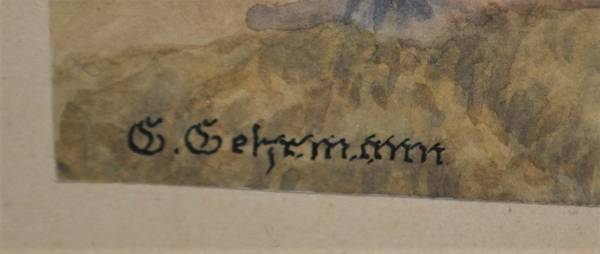 G. Gehrmann